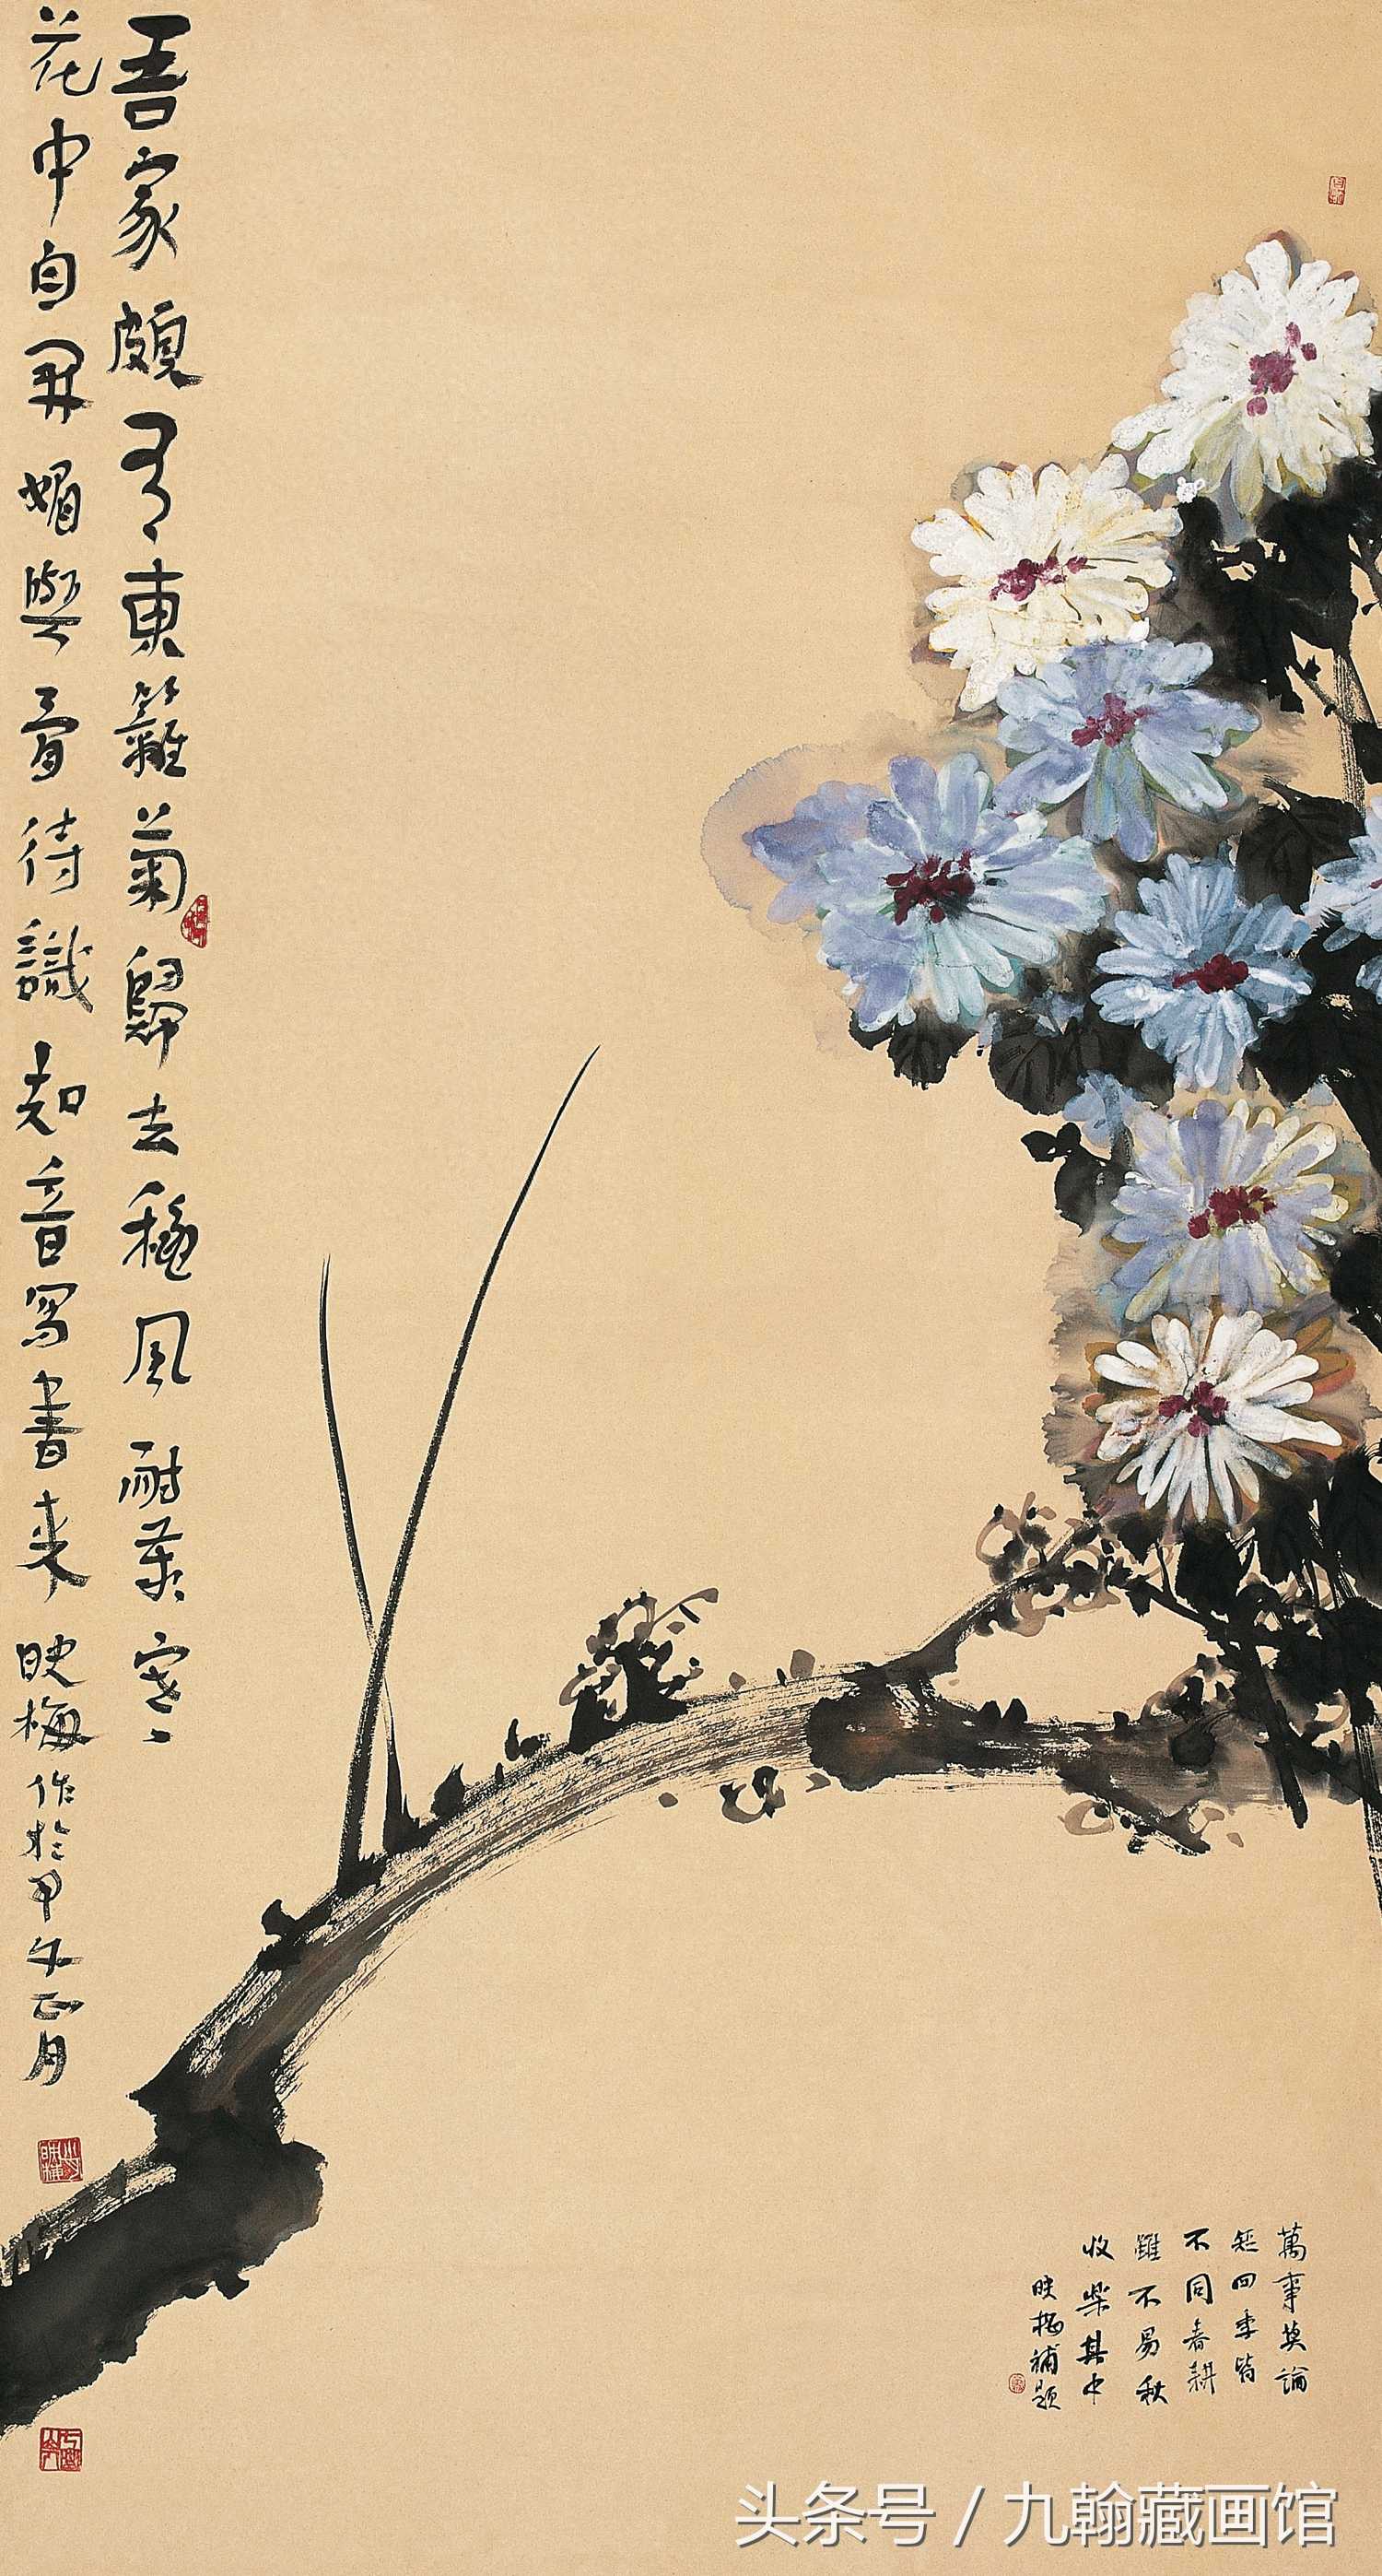 吾家頗有東籬菊歸去穐風耐歲寒
花中自開媚與骨待識知音寫書来 映梅作於甲午正月
萬事莫論
短四季皆
不同春耕
雖不易秋
收樂其中
映梅補題
头条号 / 九翰藏画馆